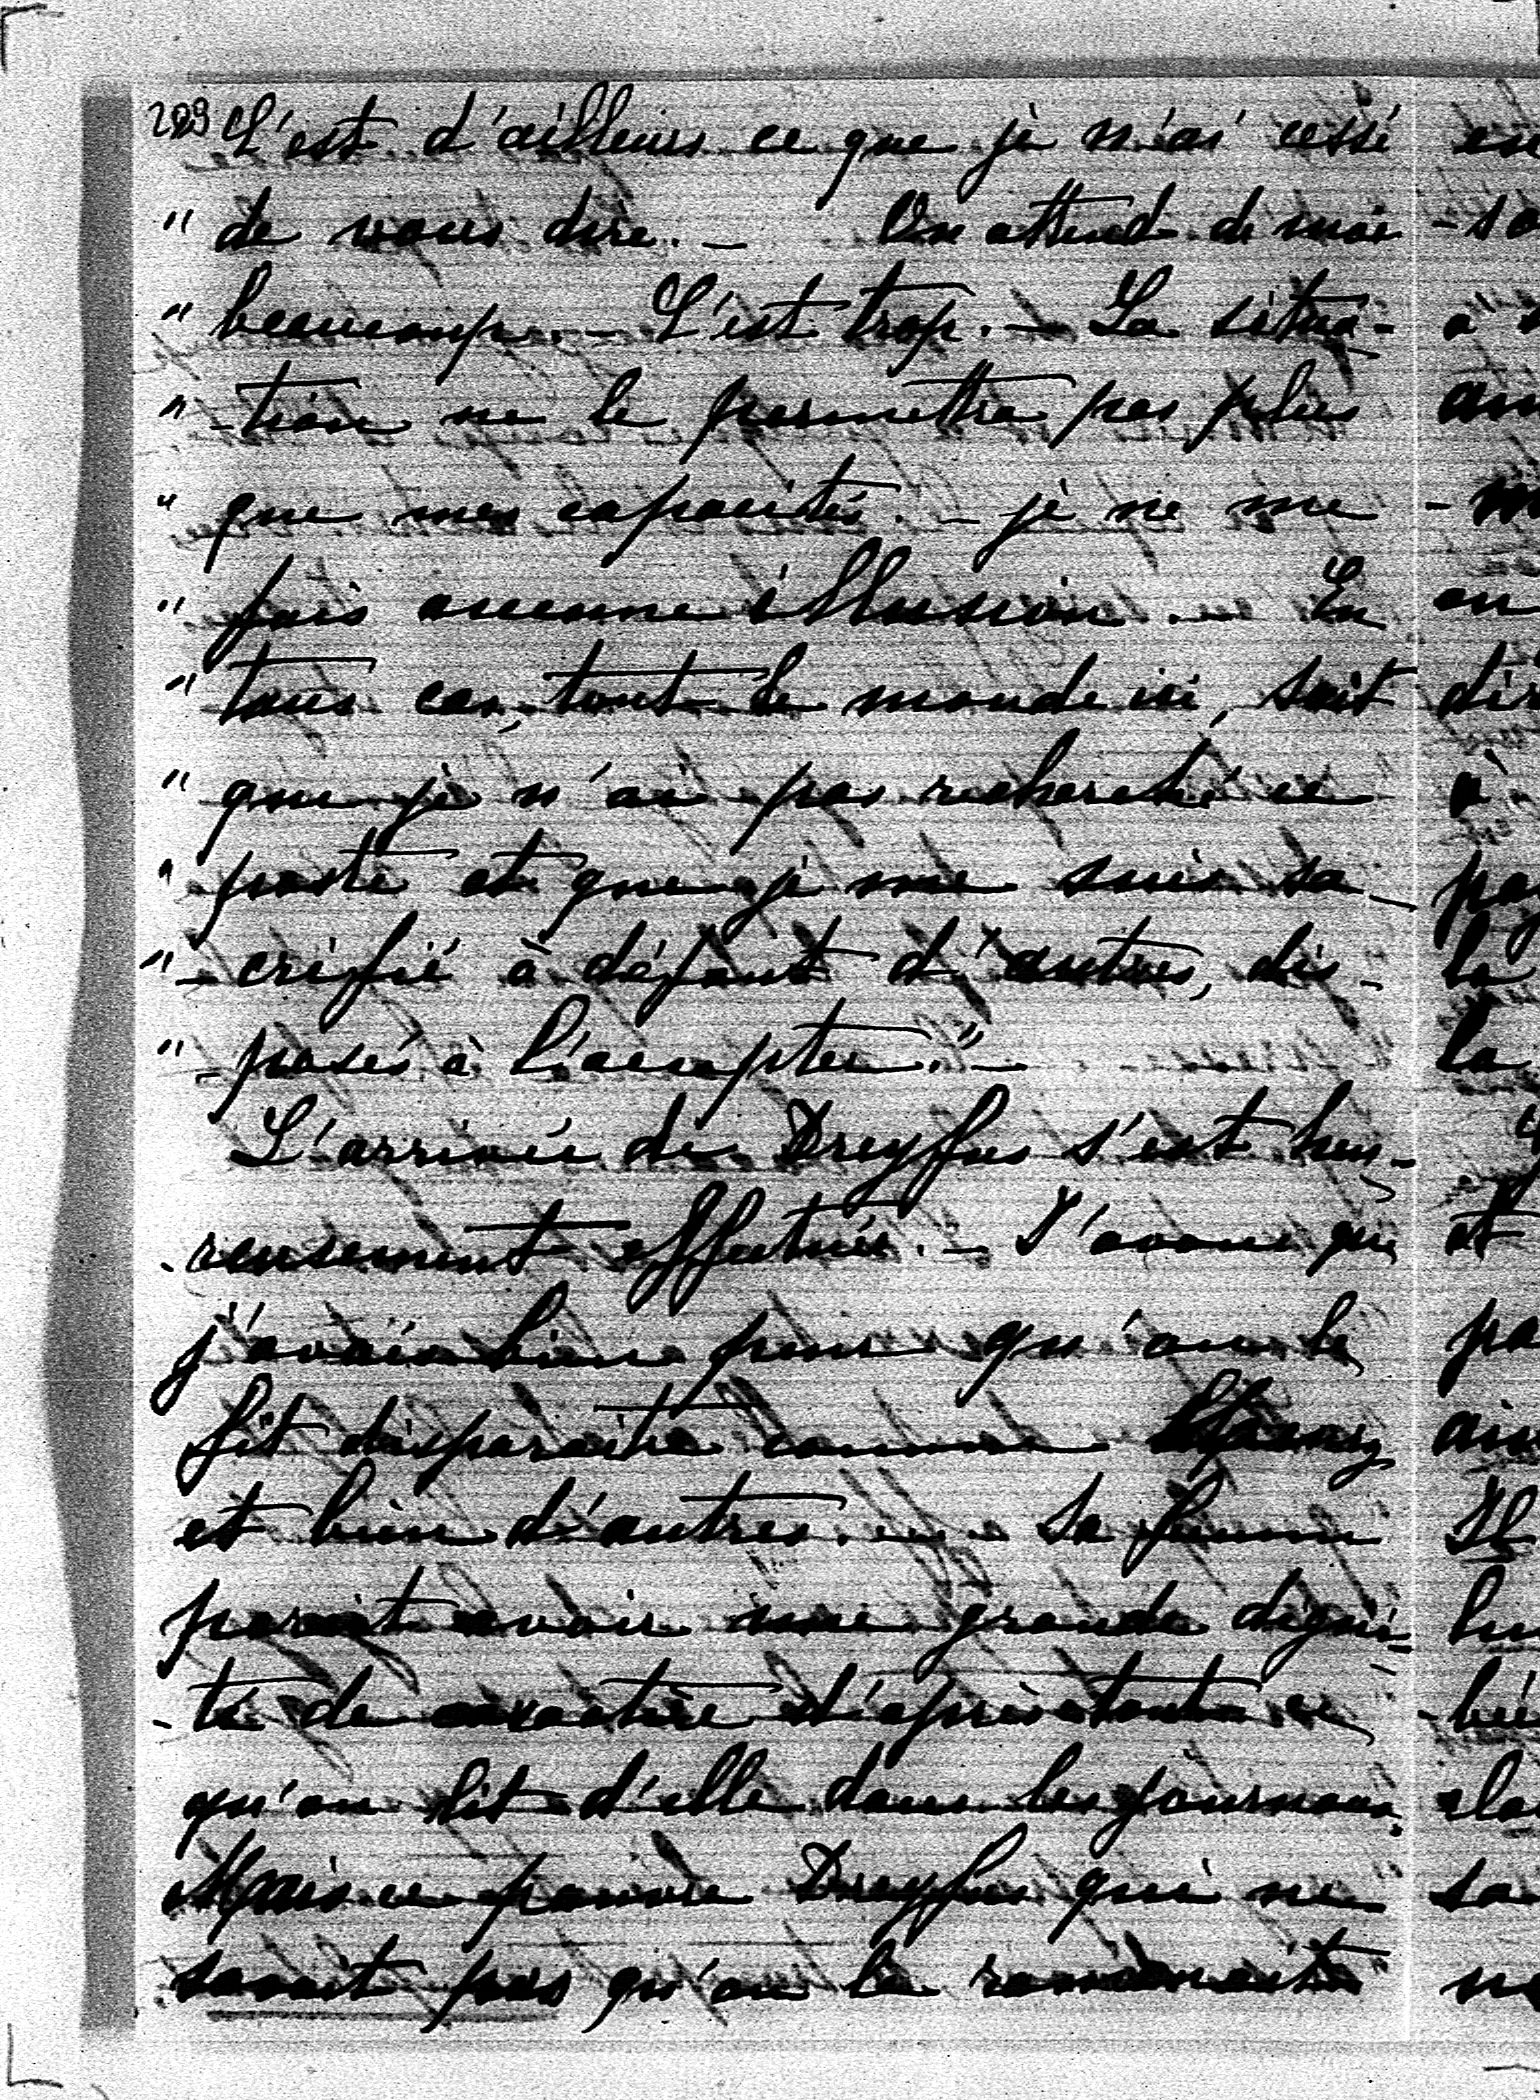 289 C'est d'ailleurs ce que je n'ai cessé
" de vous dire. — On attend de moi
" beaucoup. — C'est trop. — La situa-
" -tion ne le permettra pas plus
" que mes capacités. — je ne me
" fais aucune illusion. — En
" tous cas, tout le monde ici, sait
" que je n'ai pas recherché ce
" poste et que je me suis sa-
" -crifié à défaut d'autres, dis-
" -posés à l'accepter." —
L'arrivée de Dreyfus s'est heu-
-reusement effectuée. — J'avoue que
j'avais bien peur qu'on le
fît disparaître comme
et bien d'autres. — Sa femme
paraît avoir une grande digni-
-té de caractère d'après tout ce
qu'on dit d'elle dans les journaux.
Mais ce pauvre Dreyfus qui ne
savait pas qu'on le ramenait